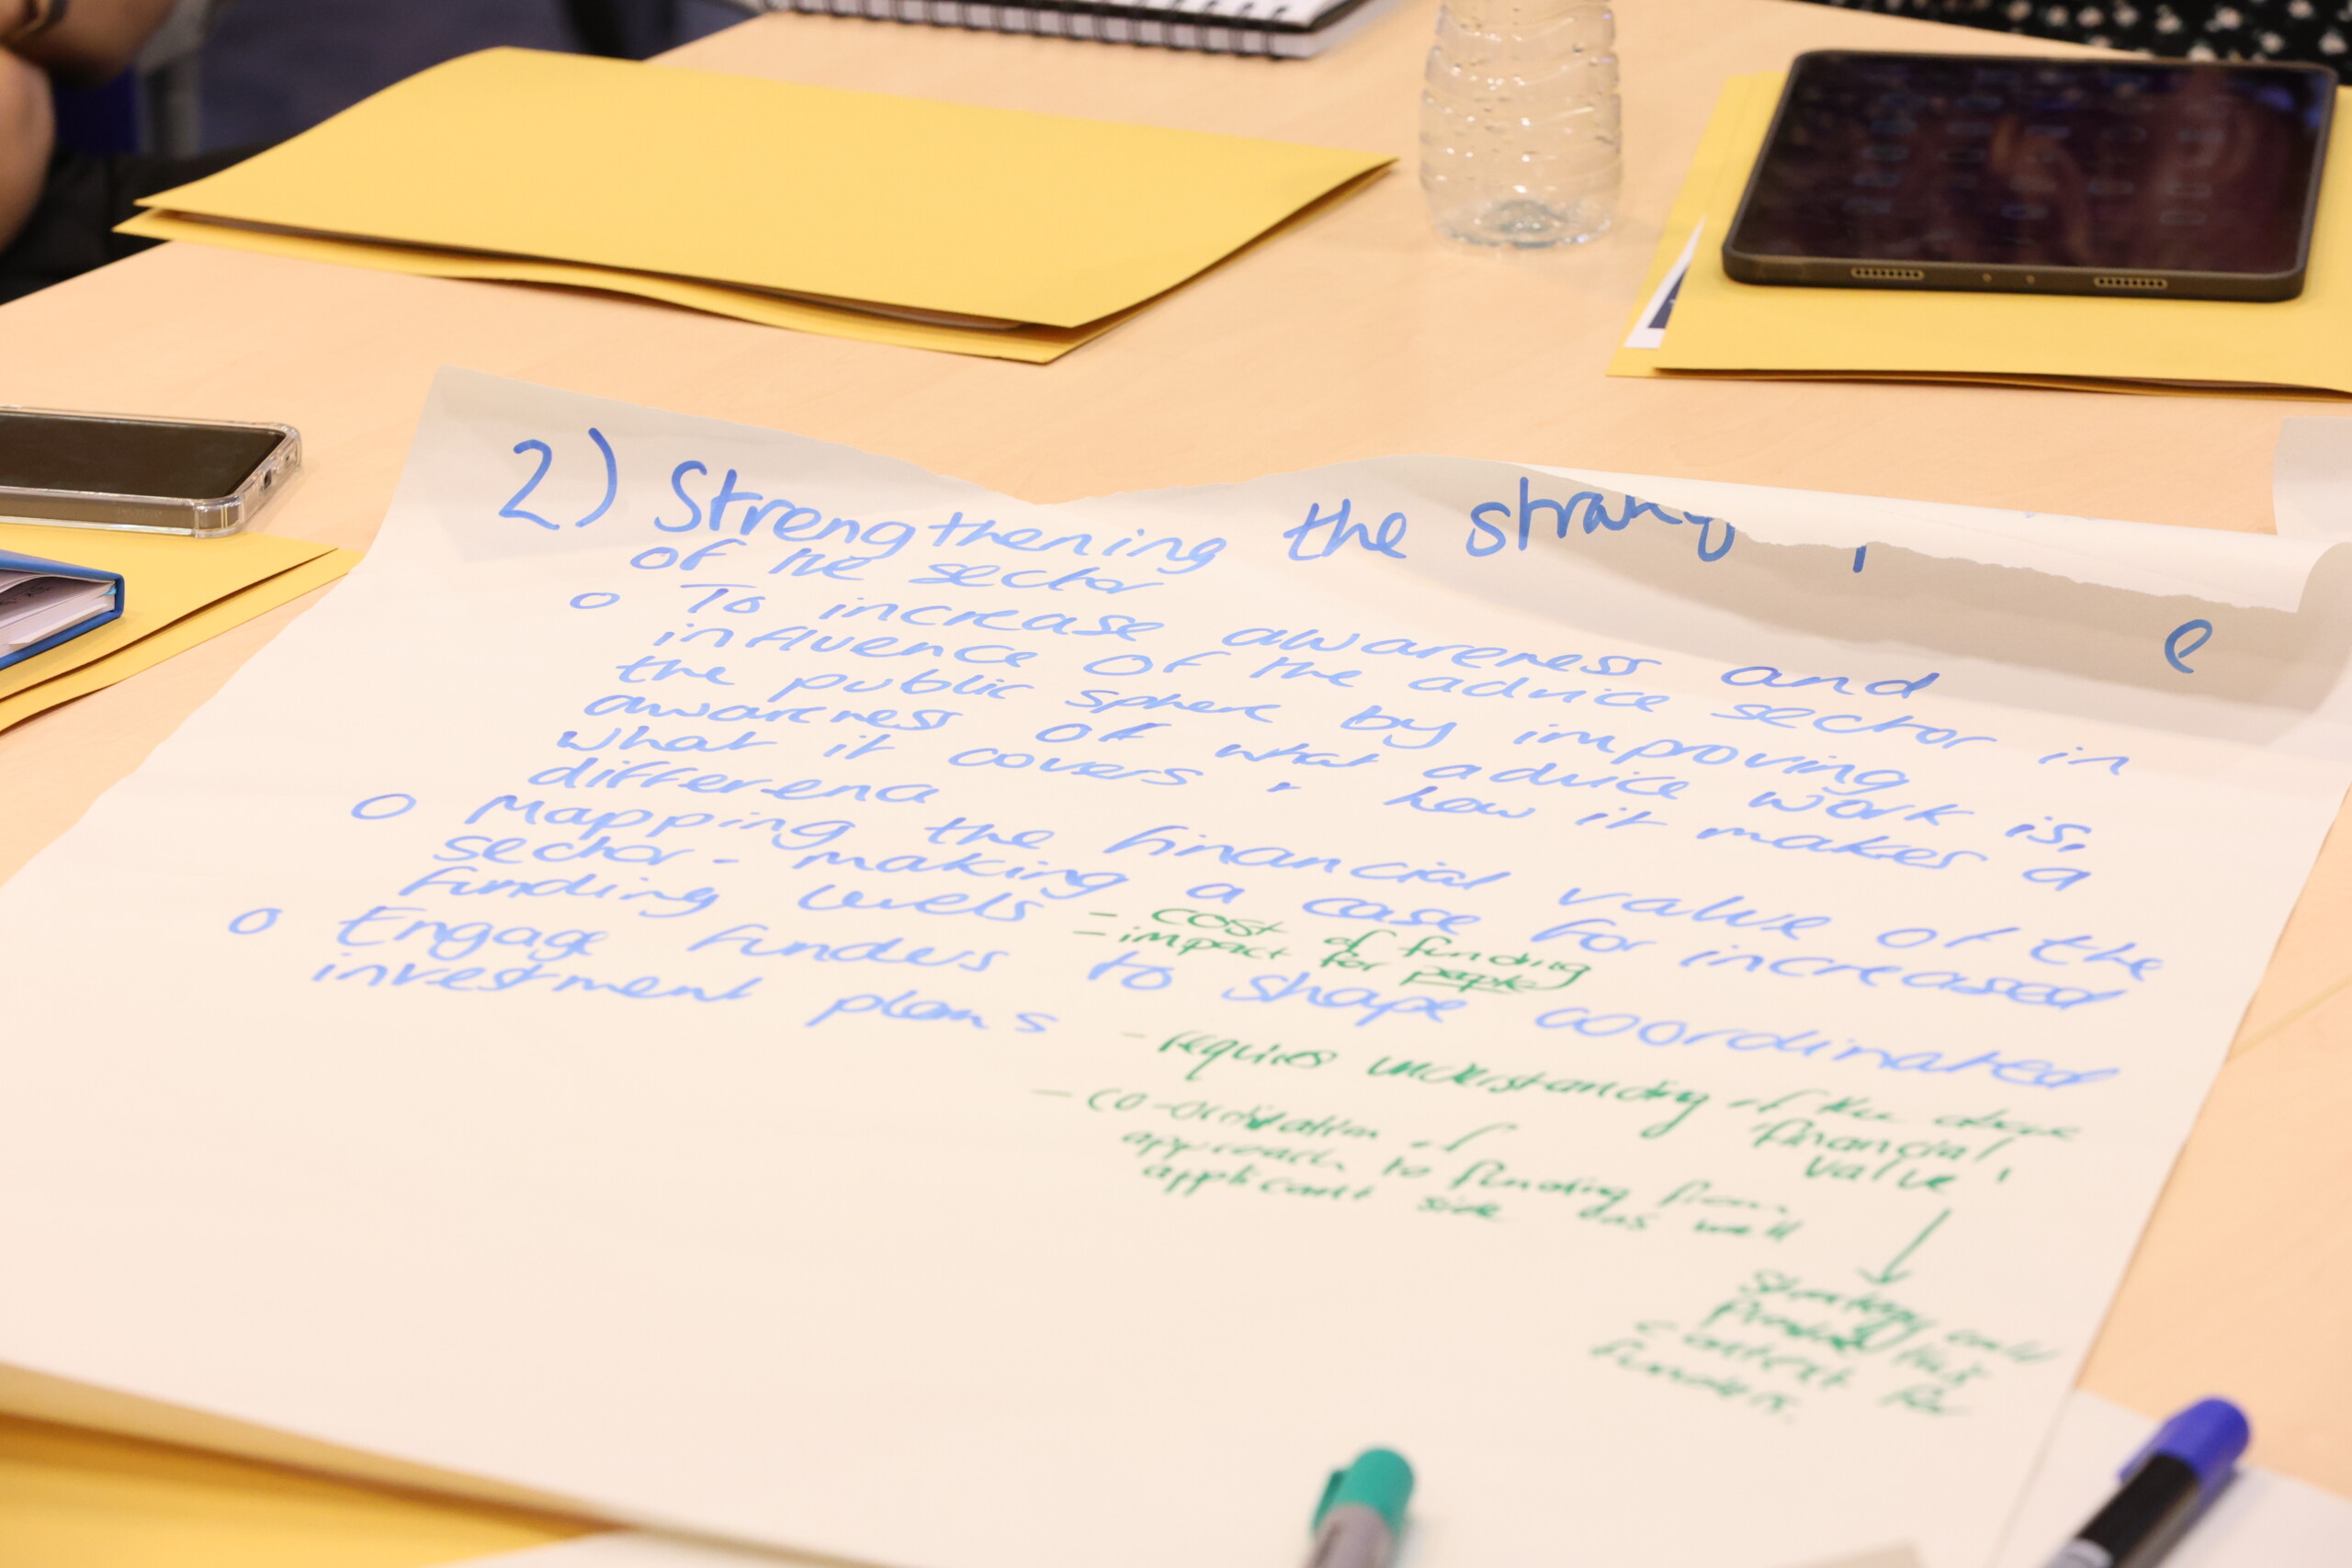 2) Strengthening the
of the sector
o To increase awareness and
influence of the advice sector in
the public sphere by improving
awareness of what advice work is,
what it covers + how it makes a
difference
o Mapping the financial value of the
sector - making a case for increased
funding levels
- cost of funding
- impact for people
o Engage funders to shape coordinated
investment plans
- requires understanding of the above
financial
value
- co-ordination of
approach to funding from
applicant side as well
Strategy could
provide this
context for
funders.